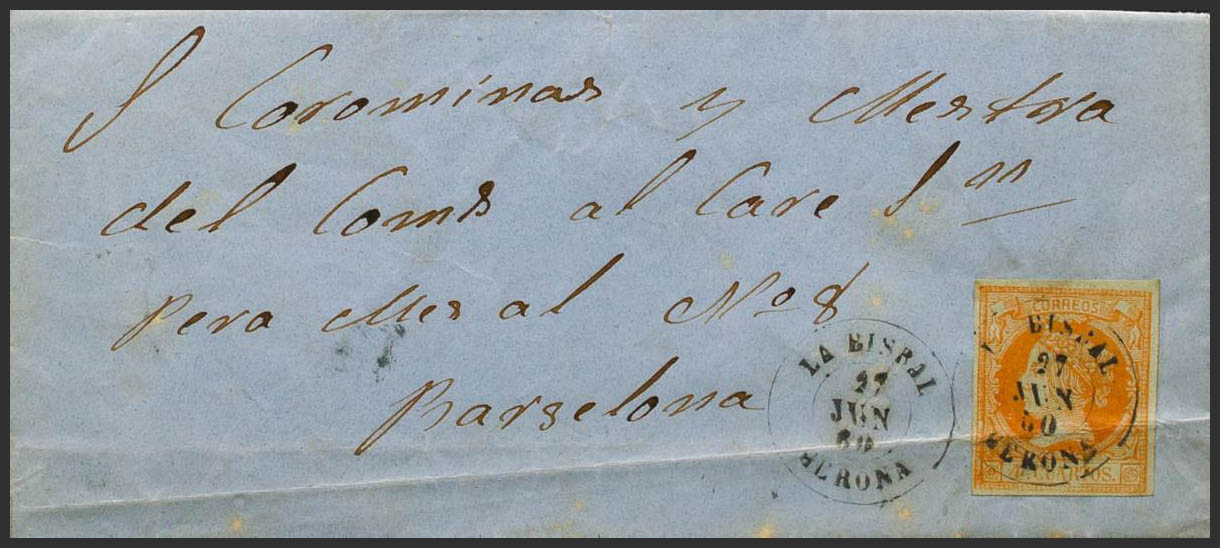 S Corominas y Mestra
del Coms al Care Sn
pera Mes al No 8
Barselona
LA BISBAL
27
JUN
60
GERONA
CORREOS
BISBAL
27
JUN
60
GERONA
CUARTOS.